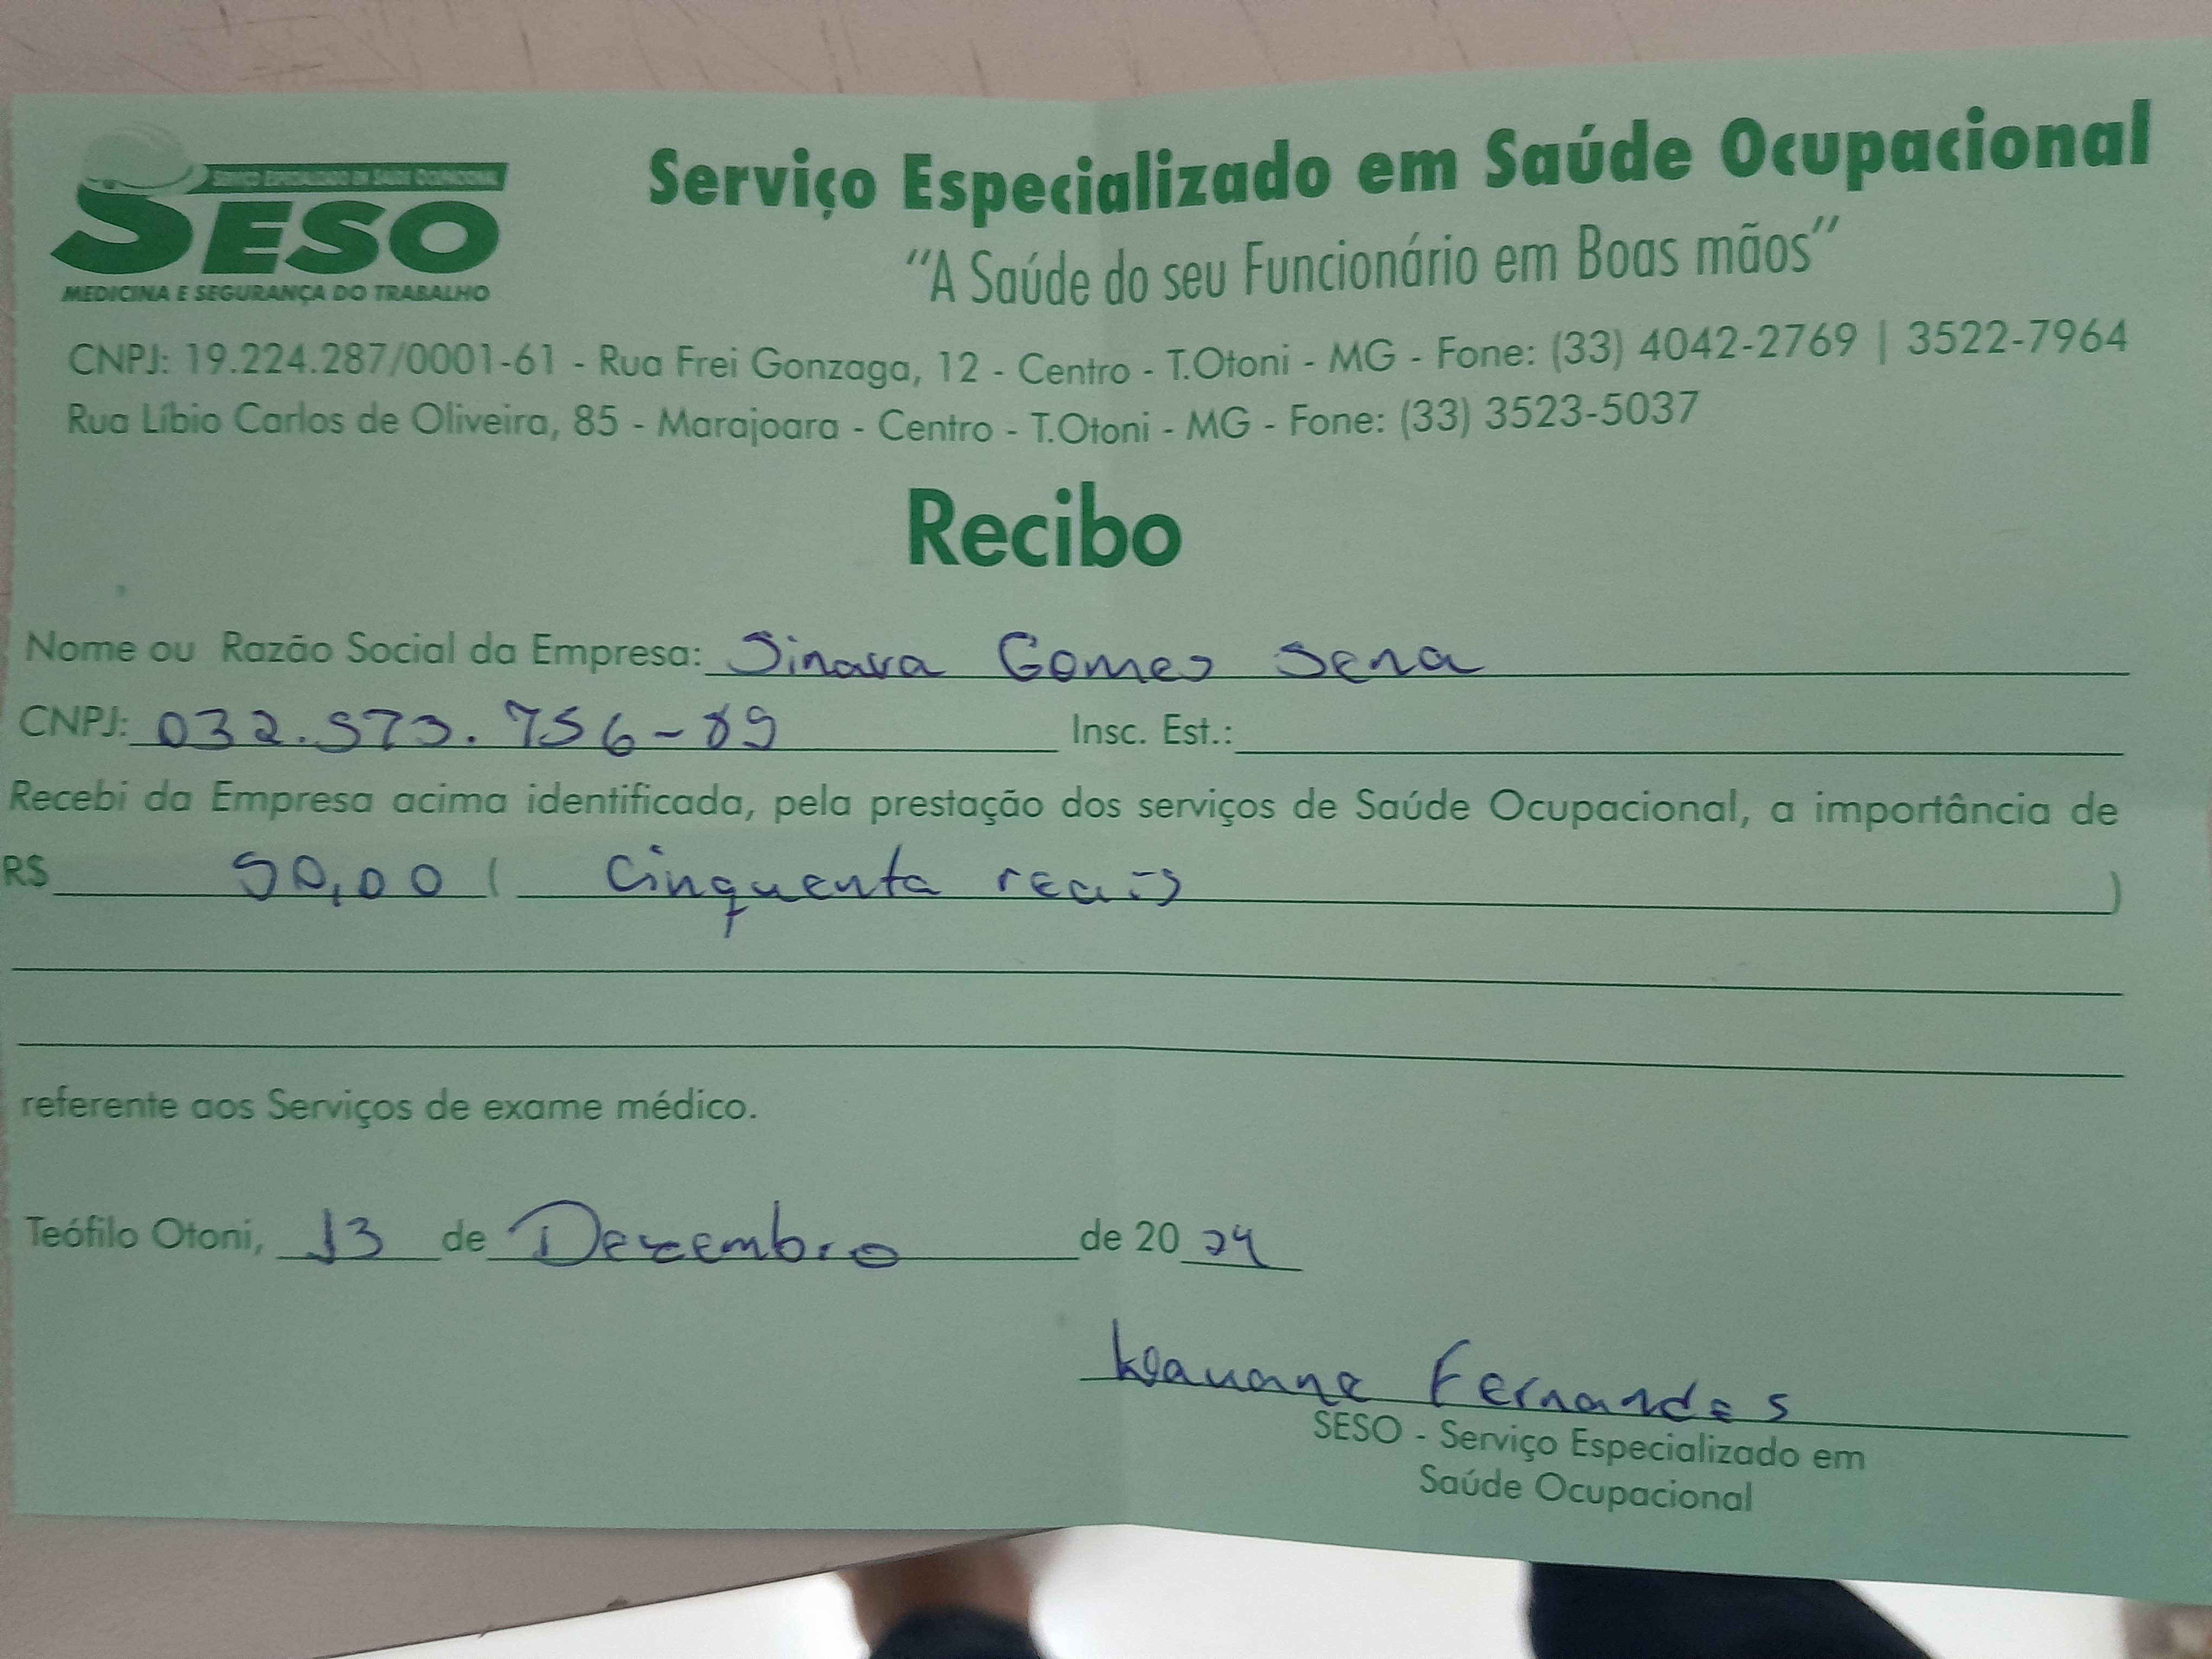 SESO
GRUPO ESPECIALIZADO EM SAÚDE OCUPACIONAL
MEDICINA E SEGURANÇA DO TRABALHO
Serviço Especializado em Saúde Ocupacional
"A Saúde do seu Funcionário em Boas mãos"
CNPJ: 19.224.287/0001-61 - Rua Frei Gonzaga, 12 - Centro - T.Otoni - MG - Fone: (33) 4042-2769 | 3522-7964
Rua Líbio Carlos de Oliveira, 85 - Marajoara - Centro - T.Otoni - MG - Fone: (33) 3523-5037
Recibo
Nome ou Razão Social da Empresa: Sinara Gomes Sena
CNPJ: 032.973.756-89 Insc. Est.:
Recebi da Empresa acima identificada, pela prestação dos serviços de Saúde Ocupacional, a importância de
R$ 50,00 ( Cinquenta reais )
referente aos Serviços de exame médico.
Teófilo Otoni, 13 de Dezembro de 2024
Fernandes
SESO - Serviço Especializado em
Saúde Ocupacional